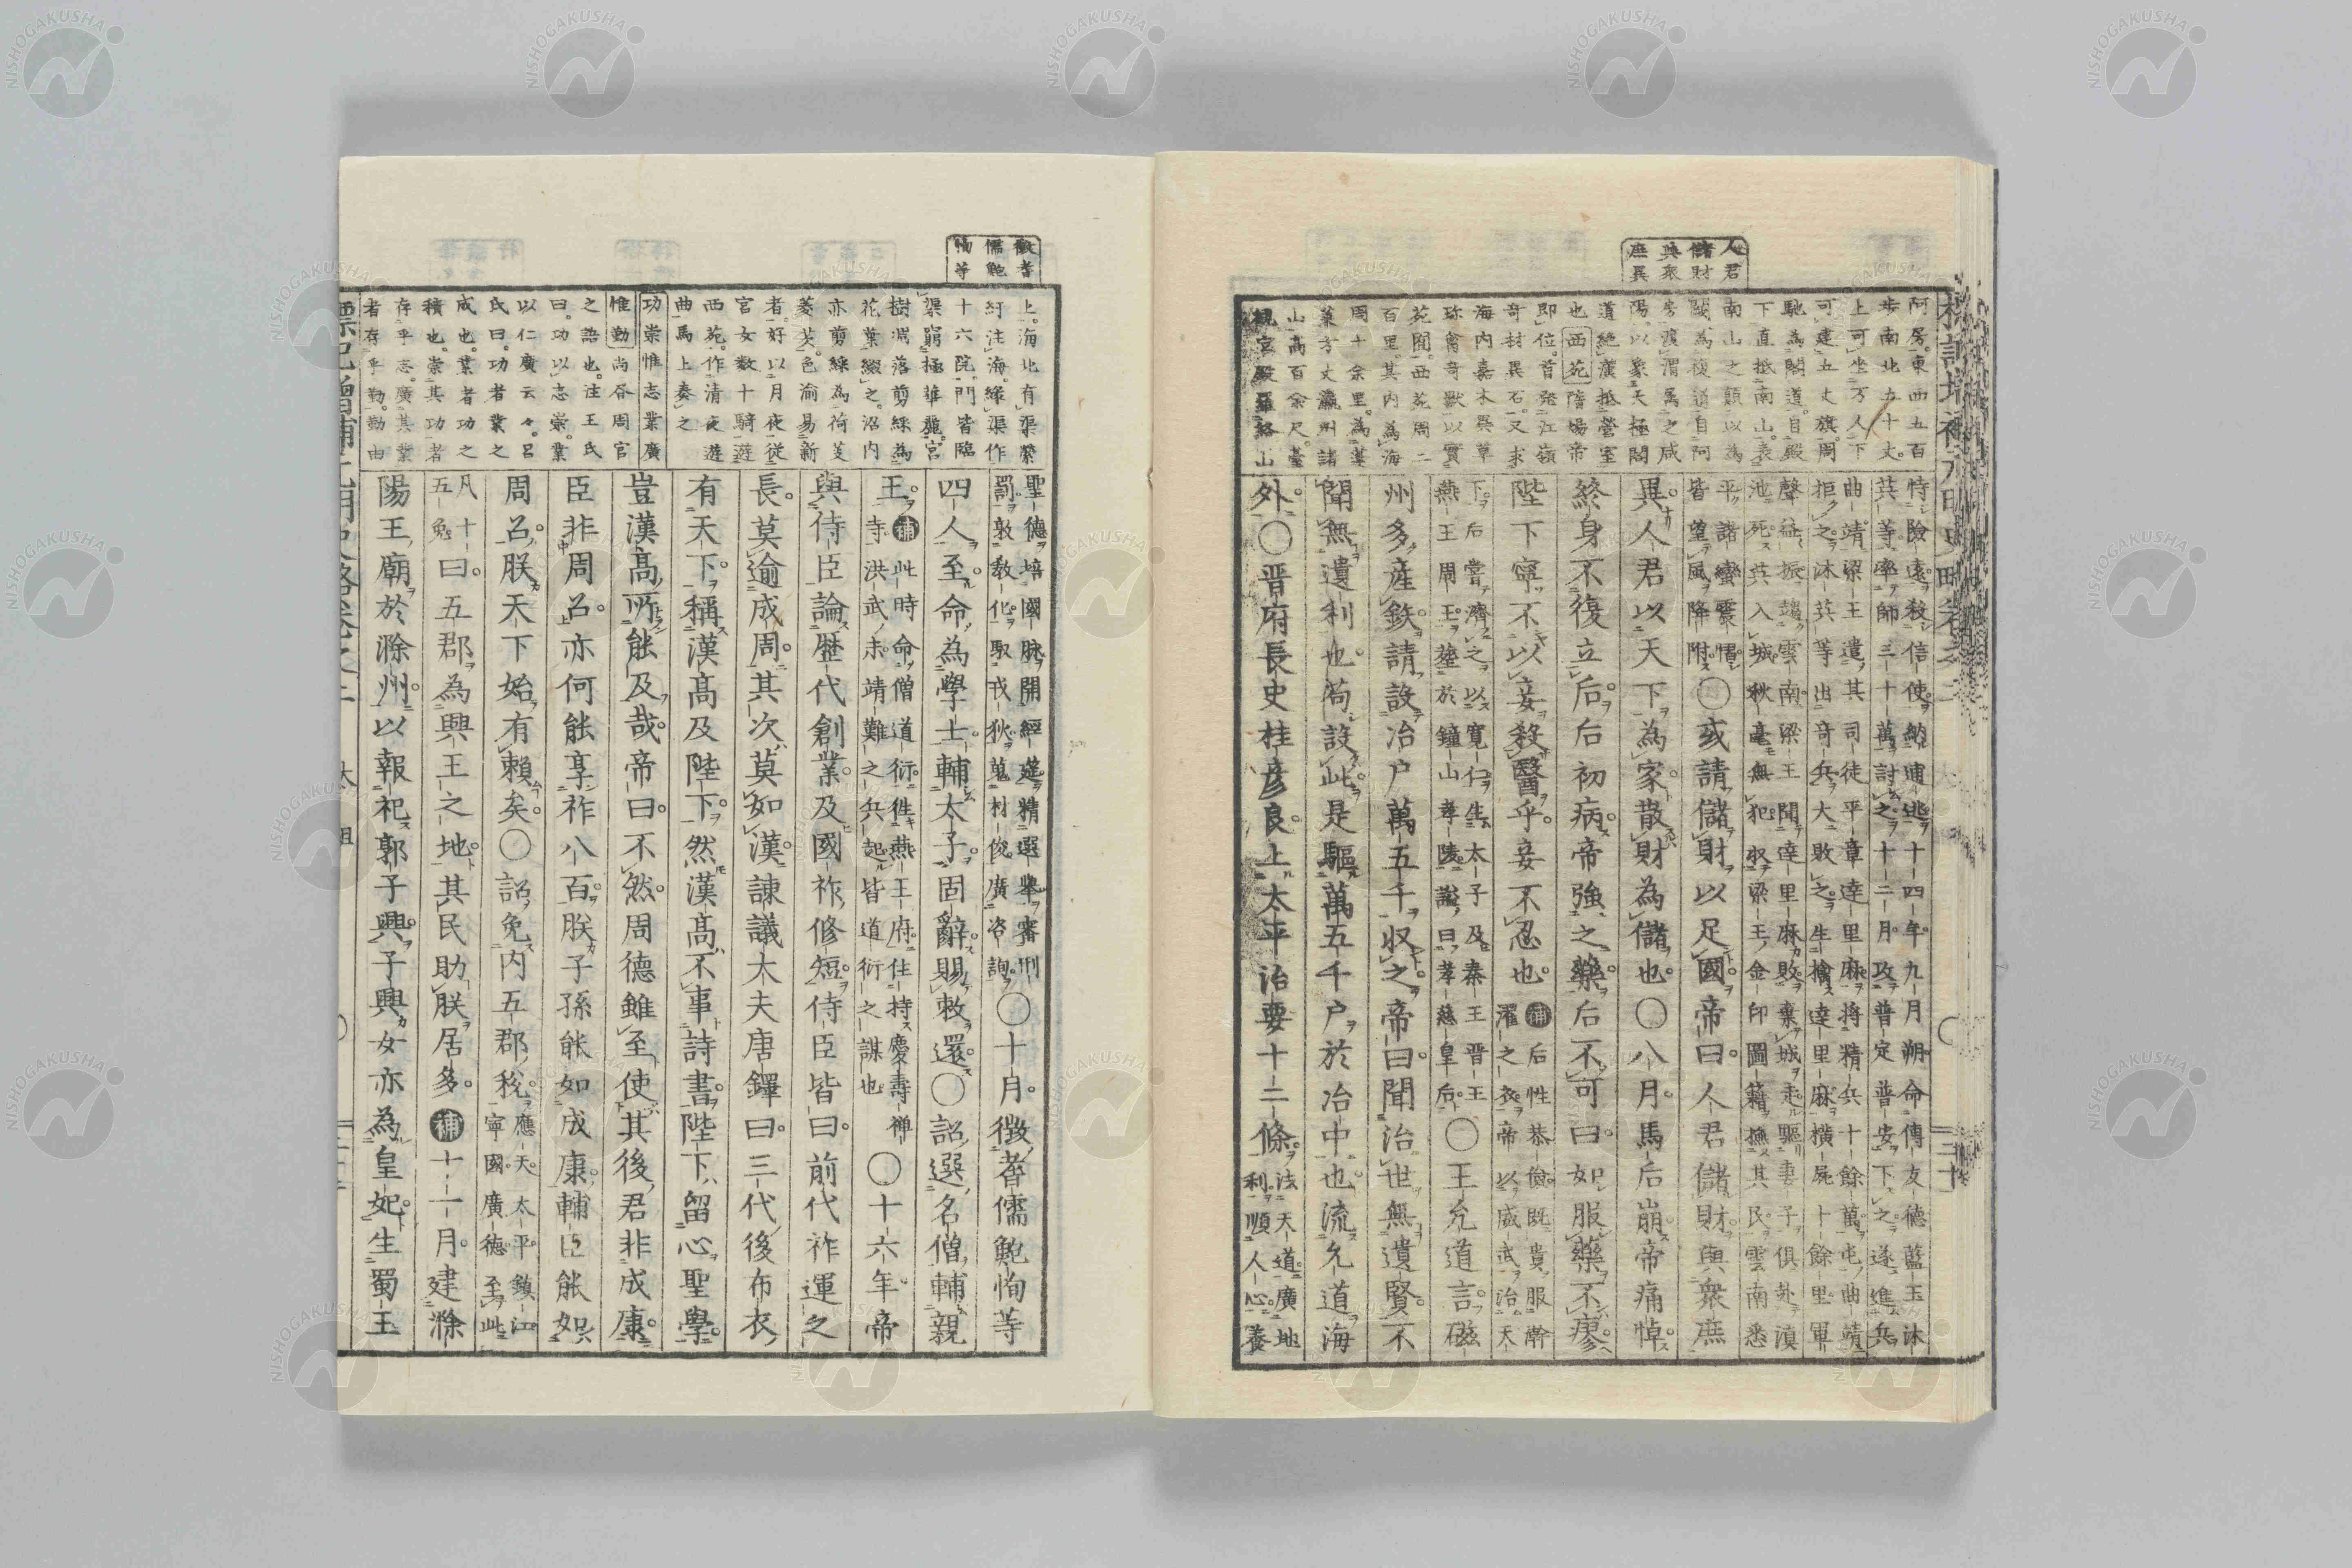 人君
儲財
與衆
庶異
阿房東西五百
步南北五十丈
上可坐万人下
可建五丈旗周
馳為閣道自殿
下直抵南山表
南山之顛以為
闕為複道自阿
房渡渭属之咸
陽以象天極閣
道絶漢抵營室
也西苑隋場帝
即位首発江嶺
奇材異石又求
海内嘉木異草
珍禽奇獸以實
苑囿西苑周二
百里其内為海
周十余里為蓬
萊方丈瀛州諸
山高百余尺臺
觀宮殿羅絡山
恃險遠殺信使納逋逃十四年九月朔命傳友德藍玉沐
英等率師三十萬討之十二月攻普定普安下之遂進兵
曲靖梁王遣其司徒平章達里麻將精兵十餘萬屯曲靖
拒之沐英等出奇兵大敗之生擒達里麻橫屍十餘里軍
聲益振趨雲南梁王聞達里麻敗棄城走驅妻子俱赴滇
池死英入城秋毫無犯収梁王金印圖籍撫其民雲南悉
平諸蠻震慴
皆望風降附〇或請儲財以足國帝曰人君儲財與衆庶
異人君以天下為家散財為儲也〇八月馬后崩帝痛悼
終身不復立后后初病帝強之藥后不可曰如服藥不瘳
陛下寧不以妾殺醫乎妾不忍也補后性恭儉既貴服澣
濯之衣帝以威武治天
下后嘗濟之以寬仁生太子及秦王晋王
燕王周王葬於鐘山孝陵謚曰孝慈皇后〇王允道言磁
州多產鉄請設冶户萬五千収之帝曰聞治世無遺賢不
聞無遺利也苟設此是驅萬五千户於冶中也流允道海
外〇晋府長史桂彦良上太平治要十二條法天道廣地
利順人心養
徴耆
儒鮑
恂等
上海北有渠縈
紆注海緣渠作
十六院門皆臨
渠窮極華麗宮
樹凋落剪綵為
花葉綴之沼内
亦剪綵為荷芰
菱芡色渝易新
者好以月夜従
宮女数十騎遊
西苑作清夜遊
曲馬上奏之
功崇惟志業廣
惟勤尚各周官
之語也注王氏
曰功以志崇業
以仁廣云々呂
氏曰功者業之
成也業者功之
積也崇其功者
存乎志廣其業
者存乎勤勤由
聖德培國脉開經筵精選挙審刑
罰敦教化馭戎狄蒐材俊廣咨詢〇十月徴耆儒鮑恂等
四人至命為學士輔太子固辭賜敕還〇詔選名僧輔親
王補此時命僧道衍徃燕王府住持慶壽禅
寺洪武末靖難之兵起皆道衍之謀也〇十六年帝
與侍臣論歴代創業及國祚修短侍臣皆曰前代祚運之
長莫逾成周其次莫如漢諌議大夫唐鐸曰三代後布衣
有天下稱漢髙及陛下然漢髙不事詩書陛下留心聖學
豈漢髙所能及哉帝曰不然周德雖至使其後君非成康
臣非周召亦何能享祚八百朕子孫能如成康輔臣能如
周召朕天下始有賴矣〇詔免内五郡税應天太平鎮江
寧國廣德至此
凡十
五免曰五郡為興王之地其民助朕居多補十一月建滁
陽王廟於滁州以報祀郭子興子興女亦為皇妃生蜀王
太祖